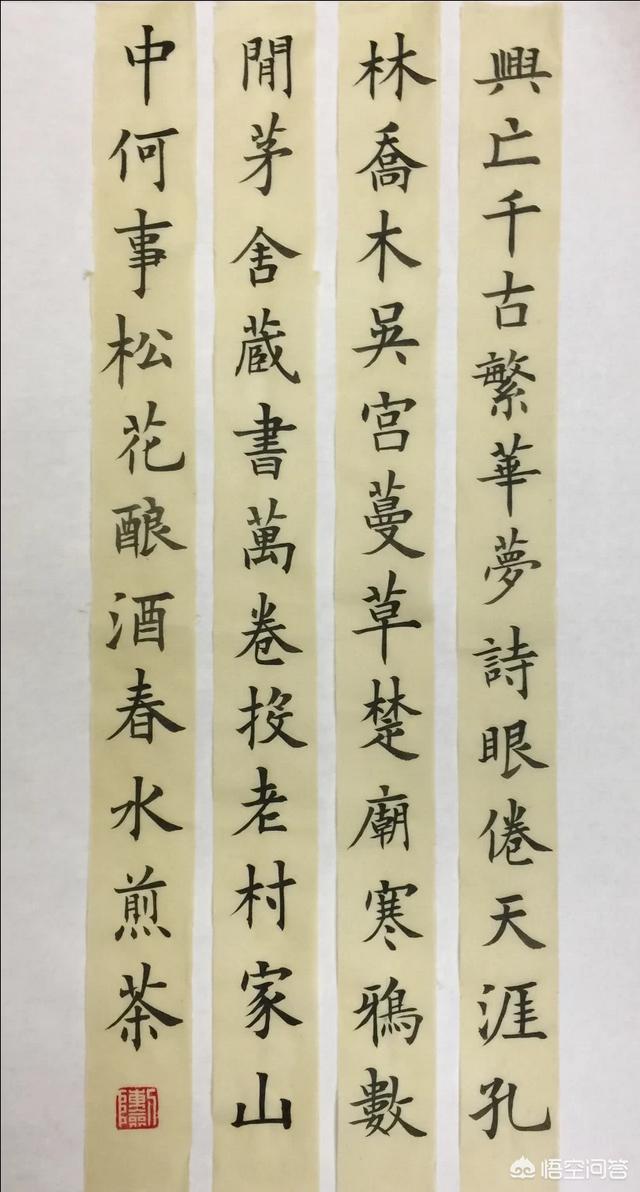 興亡千古繁華夢詩眼倦天涯孔
林喬木吳宮蔓草楚廟寒鴉數
間茅舍蔵書萬卷投老村家山
中何事松花酿酒春水煎茶
悟空问答